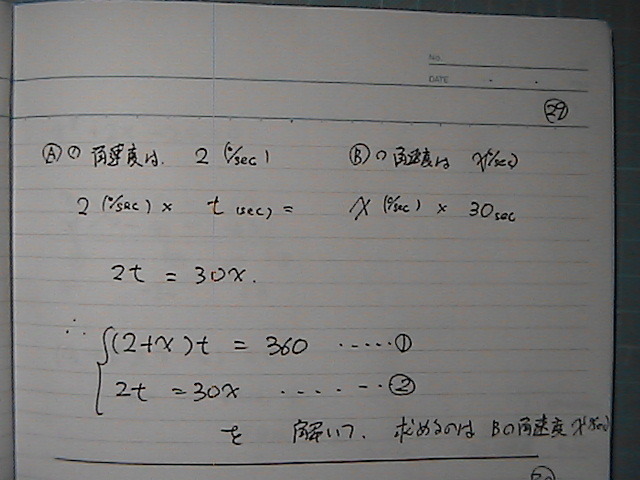 No.
DATE
29
Ⓐの角速度は. 2 (°/sec) Ⓑの角速度は x(°/sec)
2 (°/sec) × t (sec) = x (°/sec) × 30sec
2t = 30x.
∴ {(2+x)t = 360 ・・・・・①
2t = 30x ・・・・・・②
を 解いて. 求めるのは Bの角速度 x(°/sec)